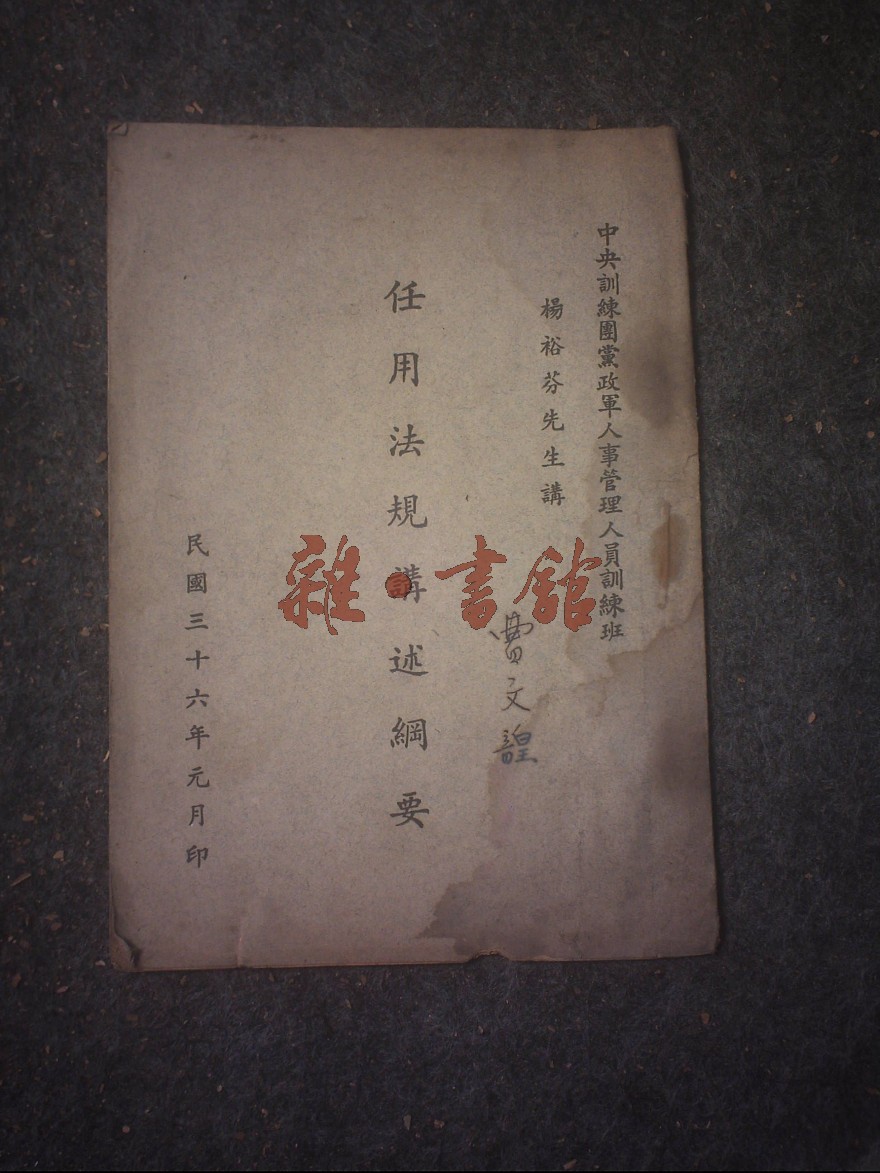 中央訓練團黨政軍人事管理人員訓練班
楊裕芬先生講
曹文諻
任用法規講述綱要
民國三十六年元月印
雜書館